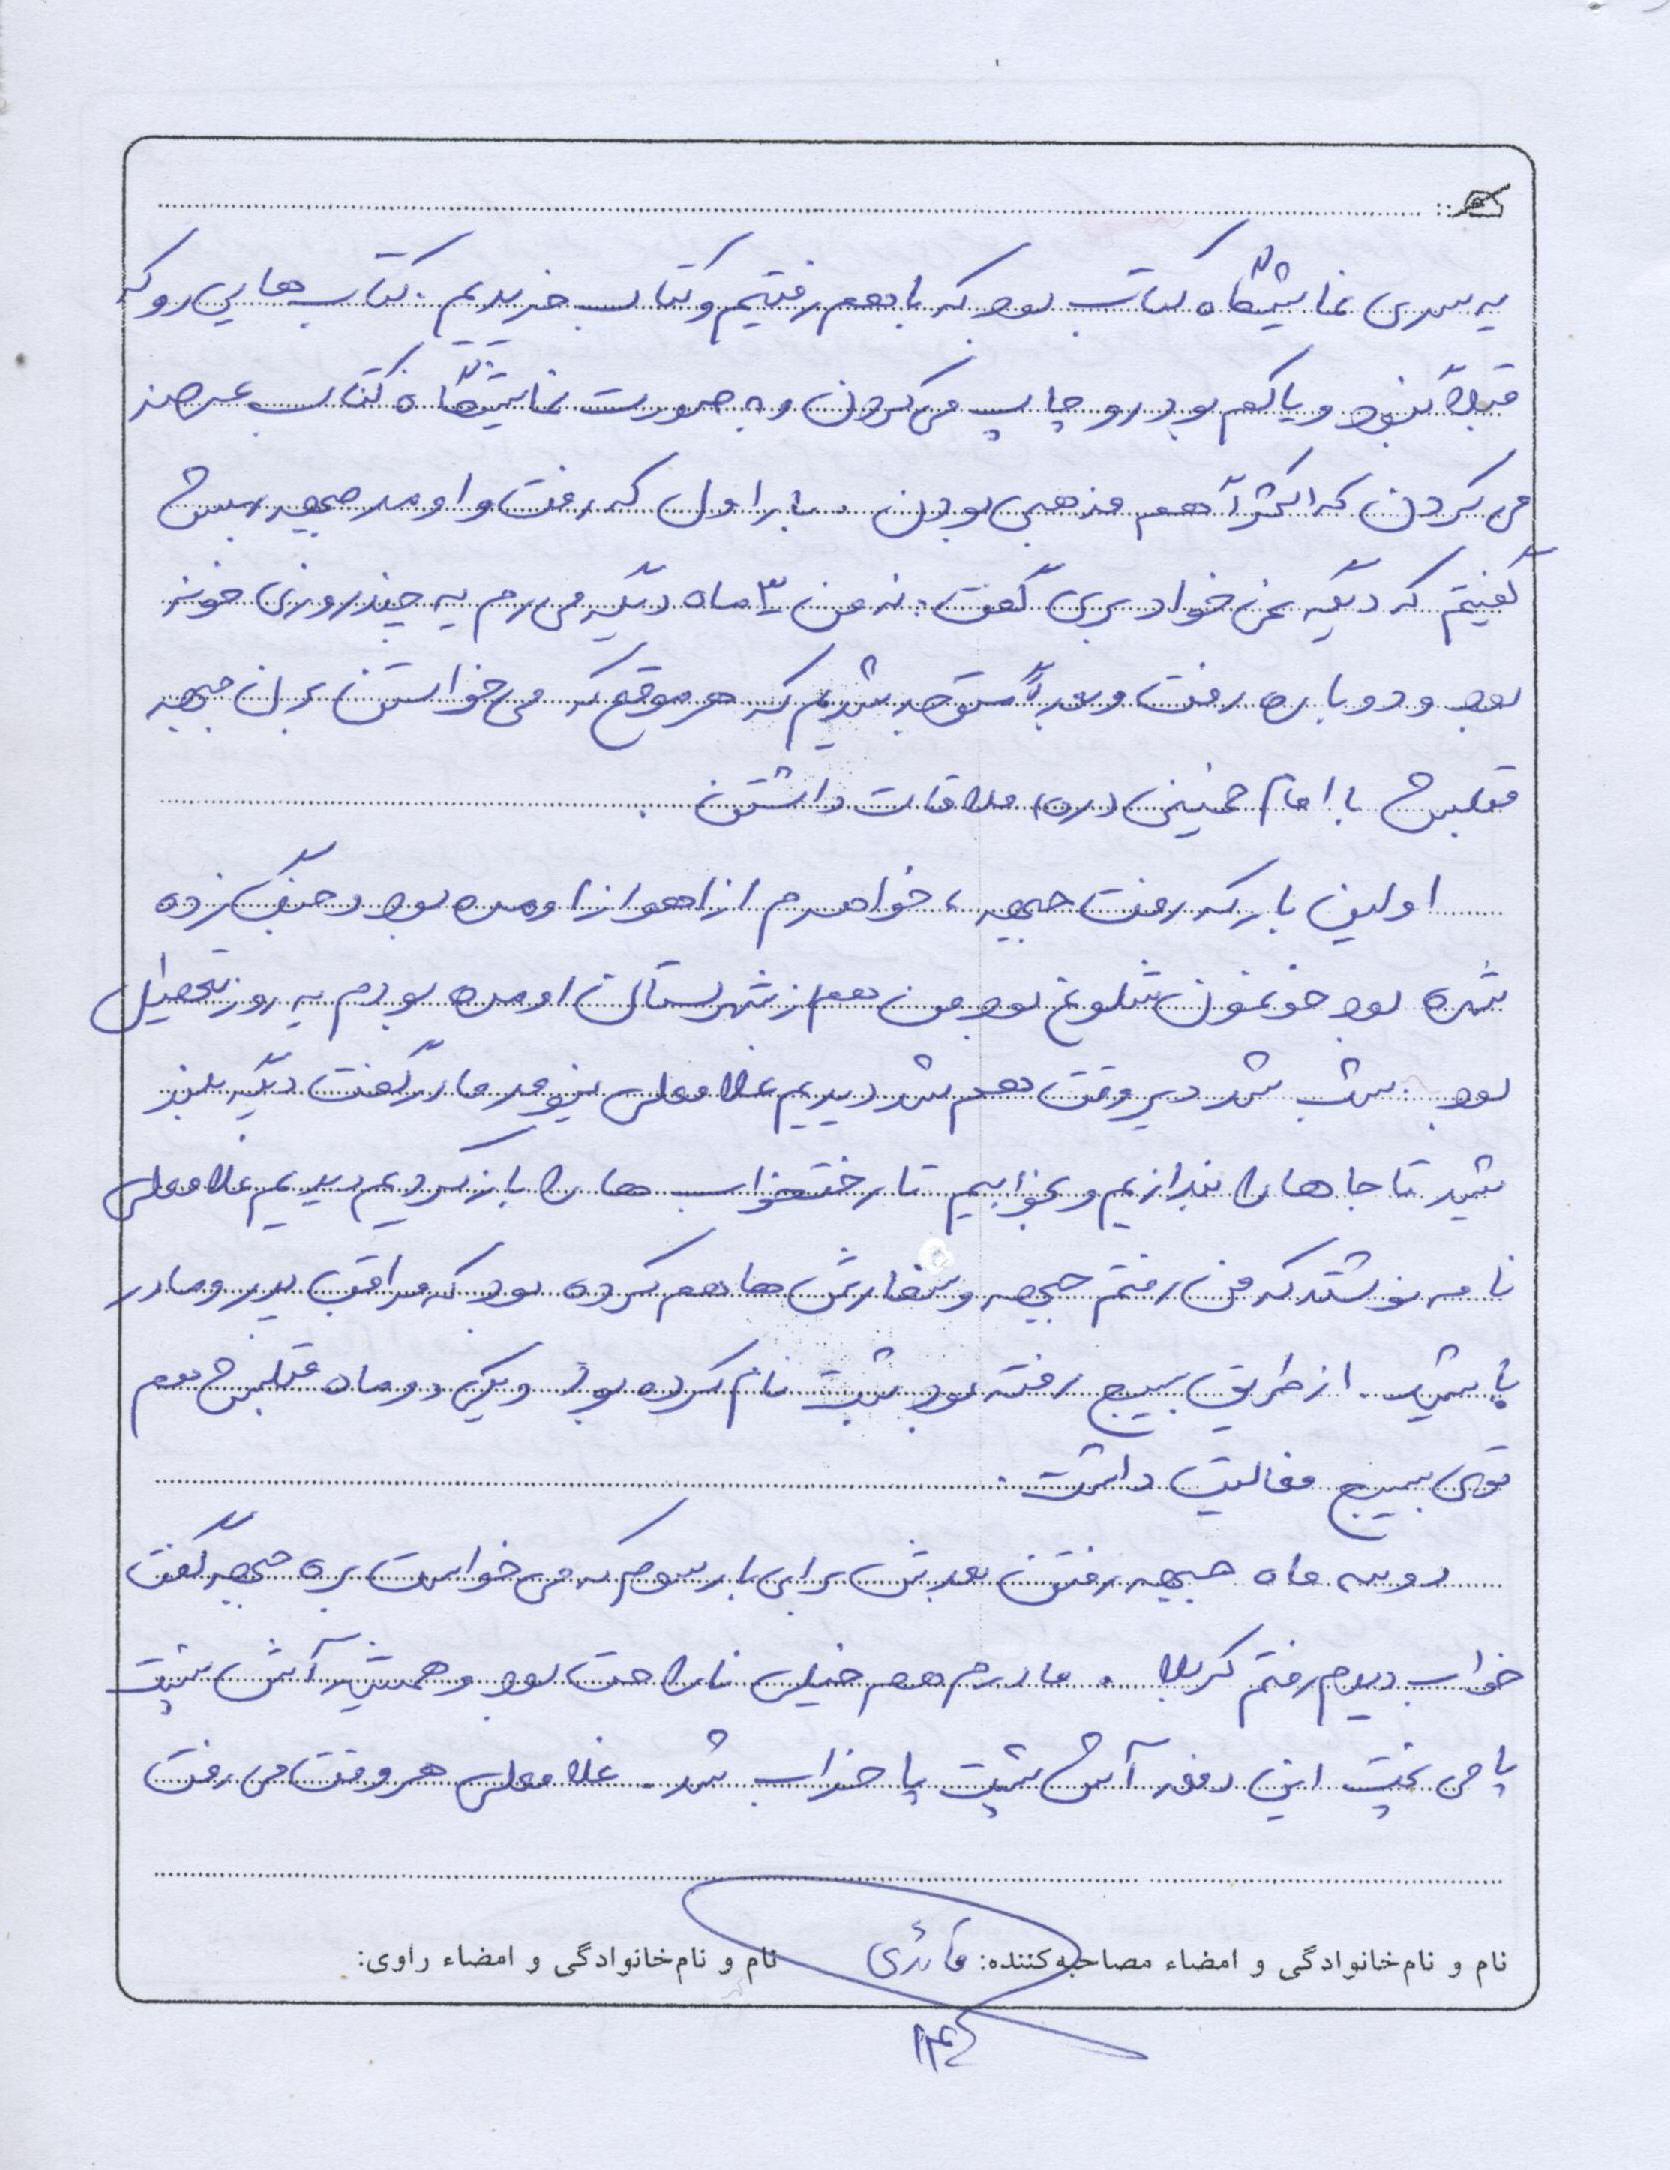 یه سری نمایشگاه کتاب بود که با هم رفتیم و کتاب خریدیم. کتاب هایی رو که
قبلاً نبود و یا کم بود رو چاپ می کردن و به صورت نمایشگاه کتاب عرضه
می کردن که اکثراً هم مذهبی بودن. بار اول که رفت و اومد جبهه بهش
گفتیم که دیگه نمی خواد بری گفت: نه من ۳ ماه دیگه می رم یه چند روزی خونه
بود و دوباره رفت و بعداً متوجه شدیم که هر موقع که می خواستن برن جبهه
قبلش با امام خمینی (ره) ملاقات داشتن.
اولین بار که رفت جبهه، خواهرم از اهواز اومده بود و جنگ زده
شده بود خونمون شلوغ بود من هم از شهرستان اومده بودم یه روز تعطیل
بود. شب شد دیروقت هم شد دیدیم غلامعلی نیومد مادر گفت دیگه بلند
شید تا جاها را بندازیم و بخوابیم تا رختخواب ها را باز کردیم دیدیم غلامعلی
نامه نوشته که من رفتم جبهه و سفارش ها هم کرده بود که مراقب پدر و مادر
باشید. از طریق بسیج رفته بود ثبت نام کرده بود و یکی دو ماه قبلش هم
توی بسیج فعالیت داشت.
دو سه ماه جبهه رفتن بعدش برای بار سوم که می خواست بره جبهه گفت
خواب دیدم رفتم کربلا. مادرم هم خیلی ناراحت بود و همیشه آش پشت
پا می پخت این دفعه آش پشت پا خراب شد. غلامعلی هر وقت می رفت
نام و نام‌خانوادگی و امضاء مصاحبه‌کننده: قائدی نام و نام‌خانوادگی و امضاء راوی: